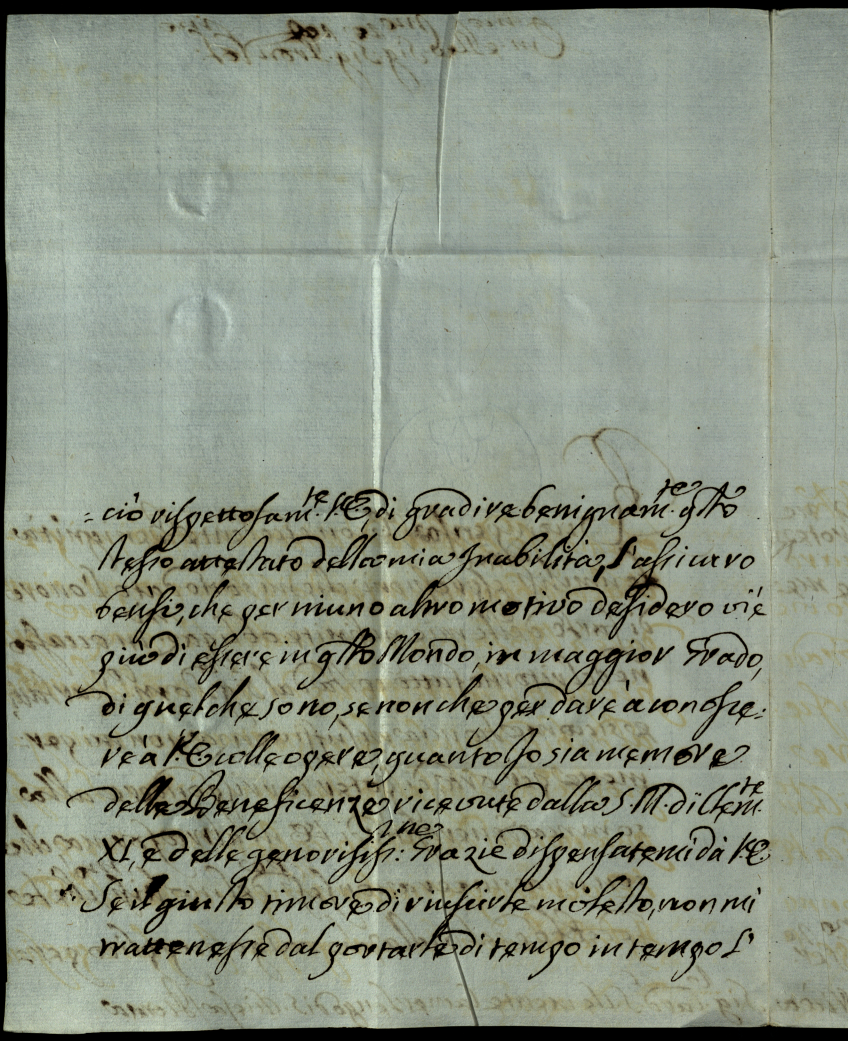 =ciò rispettosam.te V.E, di gradire benignam.te q̃sto
stesso attestato della mia Inabilità, L'assicuro
bensì, che per niuno altro motivo desidero vi è
più di essere in q̃sto Mondo, in maggior Grado,
di quel che sono, se non che per dare à conosce:
re à V.E colle opere, quanto Io sia memore
delle Beneficenze ricevute dalla S. M. di Clem.te
XI, e delle generosiss:me Grazie dispensatemi dà V.E
Se il giusto timore di riuscirle molesto, non mi
trattenesse dal portarle di tempo in tempo L'